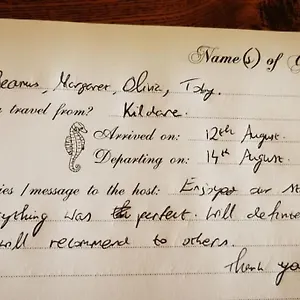 Name(s) of
Seamus, Margaret, Olivia, Toby.
travel from? Kildare.
Arrived on: 12th August.
Departing on: 14th August.
ies / message to the host: Enjoyed our st
ything was perfect. Will definite
will recommend to others.
Thank yo